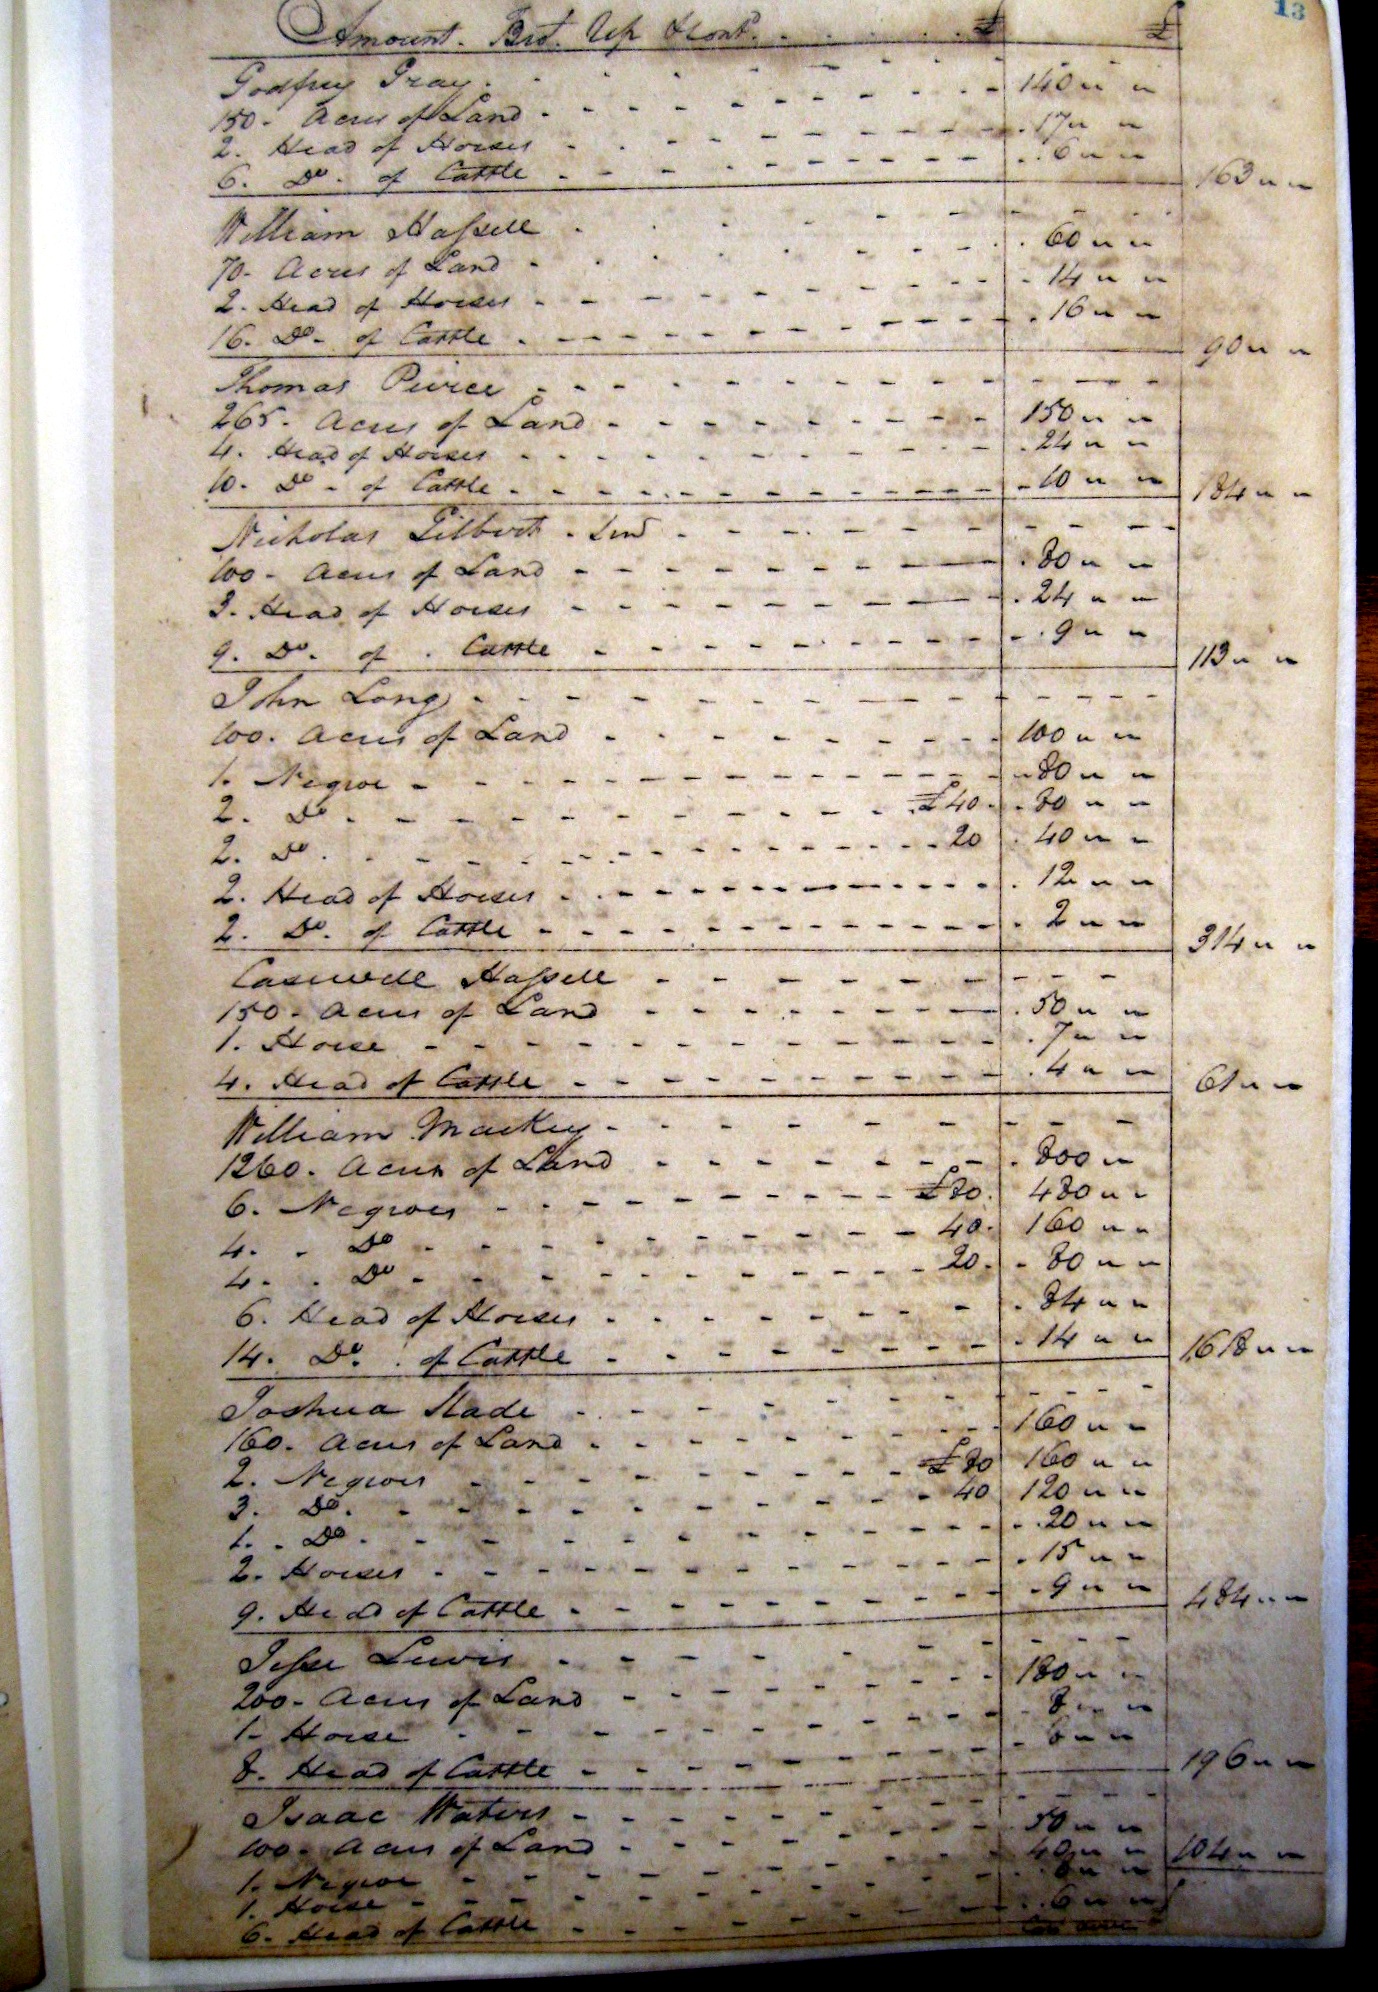 13
Amount. Brot. Up & Cont. £ £
Godfrey Gray
150. Acres of Land 140 " "
2. Head of Horses 17 " "
6. Do. of Cattle 6 " " 163 " "
William Hassell
70. Acres of Land 60 " "
2. Head of Horses 14 " "
16. Do. of Cattle 16 " " 90 " "
Thomas Peirce
265. Acres of Land 150 " "
4. Head of Horses 24 " "
10. Do. of Cattle 10 " " 184 " "
Nicholas Gilbert. Senr
100. Acres of Land 80 " "
3. Head of Horses 24 " "
9. Do. of Cattle 9 " " 113 " "
John Long
100. Acres of Land 100 " "
1. Negroe 80 " "
2. Do. £40. 80 " "
2. Do. 20 40 " "
2. Head of Horses 12 " "
2. Do. of Cattle 2 " " 314 " "
Casewell Hassell
150. Acres of Land 50 " "
1. Horse 7 " "
4. Head of Cattle 4 " " 61 " "
William Mackey
1260. Acres of Land 800 "
6. Negroes £80. 480 " "
4. Do 40. 160 " "
4. Do 20. 80 " "
6. Head of Horses 84 " "
14. Do. of Cattle 14 " " 1618 " "
Joshua Slade
160. Acres of Land 160 " "
2. Negroes £80 160 " "
3. Do. 40 120 " "
1. Do. 20 " "
2. Horses 15 " "
9. Head of Cattle 9 " " 484 " "
Jesse Lewis
200. Acres of Land 180 " "
1. Horse 8 " "
8. Head of Cattle 8 " " 196 " "
Isaac Waters
100. Acres of Land 50 " "
1. Negroe 40 " " 104 " "
1. Horse 8 " "
6. Head of Cattle 6 " "